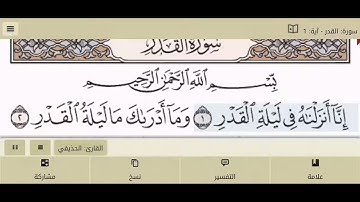 سورة: القدر - آية: 1
سُورَةُ الْقَدْرِ
بِسْمِ اللَّهِ الرَّحْمَٰنِ الرَّحِيمِ
إِنَّا أَنزَلْنَٰهُ فِى لَيْلَةِ الْقَدْرِ ١ وَمَا أَدْرَىٰكَ مَا لَيْلَةُ الْقَدْرِ ٢
القارئ: الحذيفي
علامة التفسير نسخ مشاركة